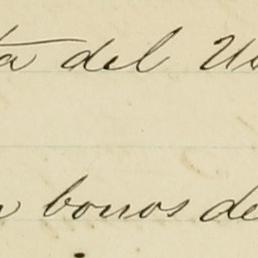 ta del Us
n bonos de